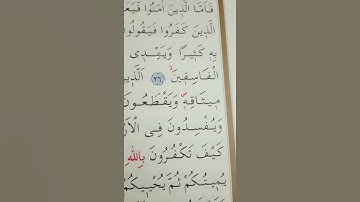 فَاَمَّا الَّذ۪ينَ اٰمَنُوا فَيَعْ
الَّذ۪ينَ كَفَرُوا فَيَقُولُو
بِه۪ كَث۪يرًا وَيَهْد۪ي
الْفَاسِق۪ينَۙ ﴿٢٦﴾ اَلَّذ۪ي
م۪يثَاقِه۪ۖ وَيَقْطَعُونَ
وَيُفْسِدُونَ فِي الْاَرْ
كَيْفَ تَكْفُرُونَ بِاللّٰهِ
يُم۪يتُكُمْ ثُمَّ يُحْي۪يكُمْ